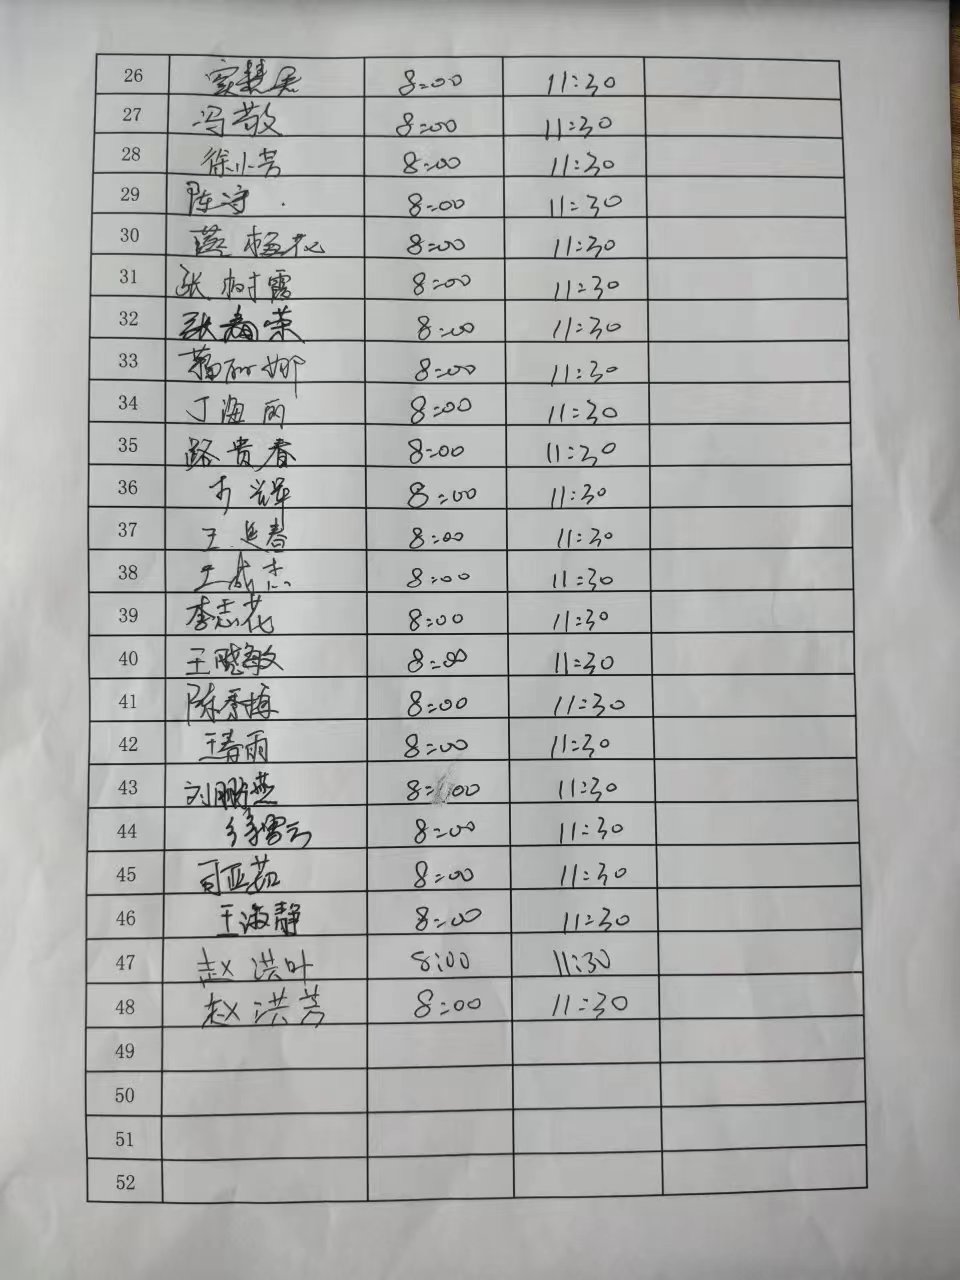 26 8:00 11:30
27 冯敬 8:00 11:30
28 徐小芳 8:00 11:30
29 陈守 8:00 11:30
30 8:00 11:30
31 张树霞 8:00 11:30
32 张春荣 8:00 11:30
33 娜 8:00 11:30
34 丁海丽 8:00 11:30
35 路贵春 8:00 11:30
36 8:00 11:30
37 王延春 8:00 11:30
38 王成杰 8:00 11:30
39 李志花 8:00 11:30
40 王晓敏 8:00 11:30
41 陈秀梅 8:00 11:30
42 王春雨 8:00 11:30
43 刘鹏燕 8:00 11:30
44 8:00 11:30
45 司亚茹 8:00 11:30
46 王海静 8:00 11:30
47 赵洪叶 8:00 11:30
48 赵洪芳 8:00 11:30
49
50
51
52